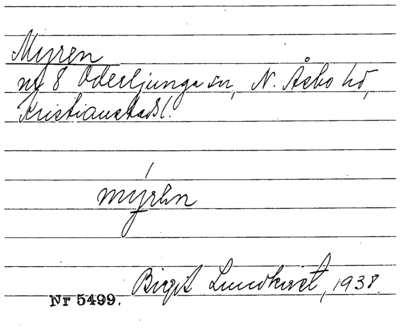 Myren
nr 8 Oderljunga sn, N. Åsbo hd,
Kristianstads l.
mýren
Birgit Lundkvist, 1938.
Nr 5499.